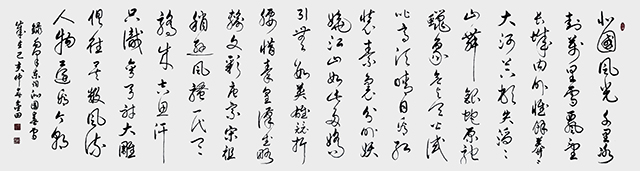 北國風光千里冰
封萬里雪飄望
長城内外惟餘莽〻
大河上下頓失滔〻
山舞銀蛇原馳
蠟象欲與天公試
比高須晴日看紅
裝素裹分外妖
嬈江山如此多嬌
引無數英雄競折
腰惜秦皇漢武略
輸文彩唐宗宋祖
稍遜風騷一代天
驕成吉思汗
只識彎弓射大雕
俱往矣數風流
人物還看今朝
錄毛澤東沁園春雪
歲在己亥仲